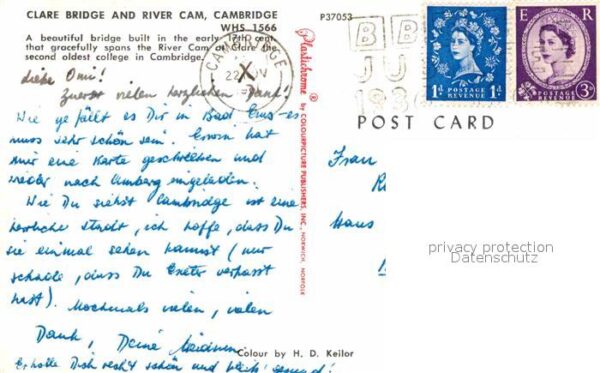 CLARE BRIDGE AND RIVER CAM, CAMBRIDGE
WHS 1566
A beautiful bridge built in the early 17th cent.
that gracefully spans the River Cam at Clare the
second oldest college in Cambridge.
P37053
CAMBRIDGE
22 NOV
BB
JU
E R
1D POSTAGE REVENUE 1D
POSTAGE REVENUE 3D
POST CARD
Plastichrome ® by COLOURPICTURE PUBLISHERS, INC., NORWICH, NORFOLK
Liebe Omi!
Zuerst vielen herzlichen Dank!
Wie gefällt es Dir in Bad Ems - es
muss sehr schön sein. Erwin hat
mir eine Karte geschrieben und
wieder nach Limburg eingeladen.
Wie Du siehst Cambridge ist eine
herrliche Stadt, ich hoffe, dass Du
sie einmal sehen kannst (nur
schade, dass Du Exeter verpasst
hast). Nochmals vielen, vielen
Dank, Deine
Erholte Dich recht schön und bleib gesund!
Frau
Haus
privacy protection
Datenschutz
Colour by H. D. Keilor